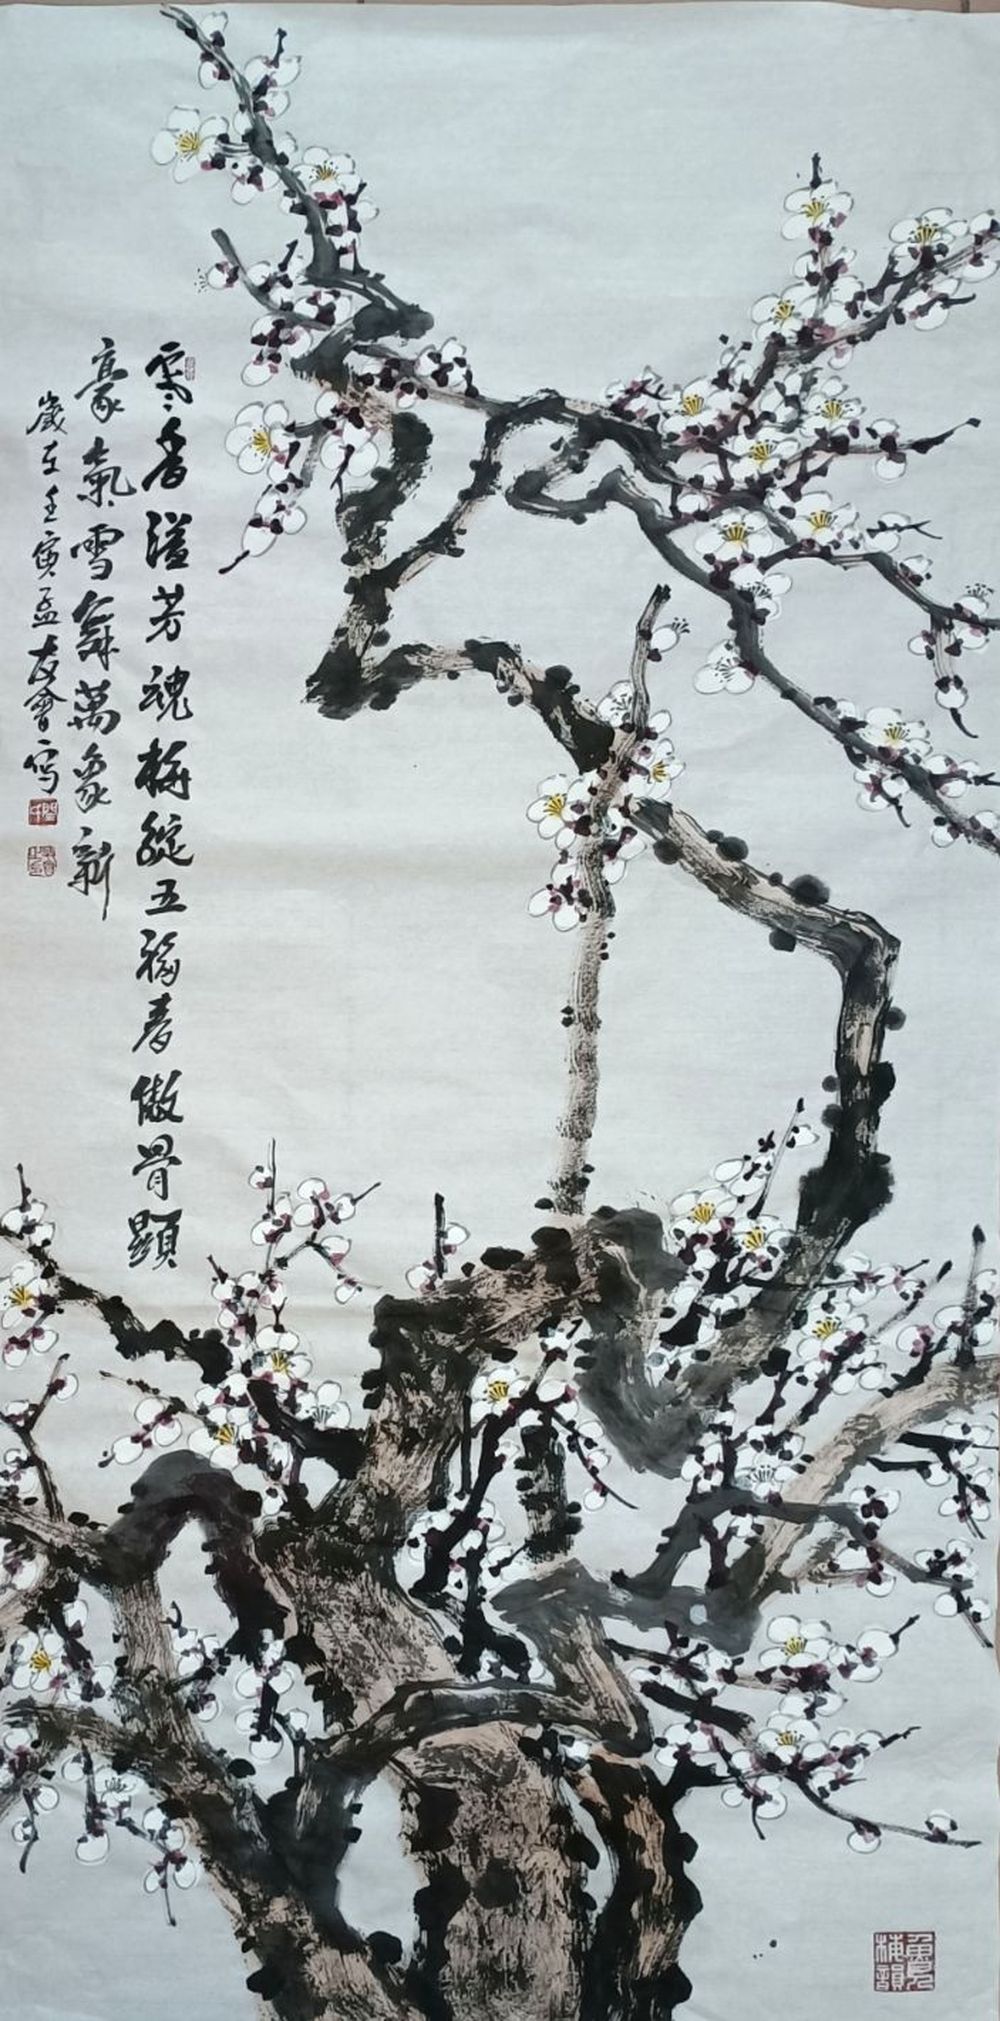 雪香溢芳魂梅綻五福春傲骨顯
豪氣雪舞萬象新
歲在壬寅孟友會寫